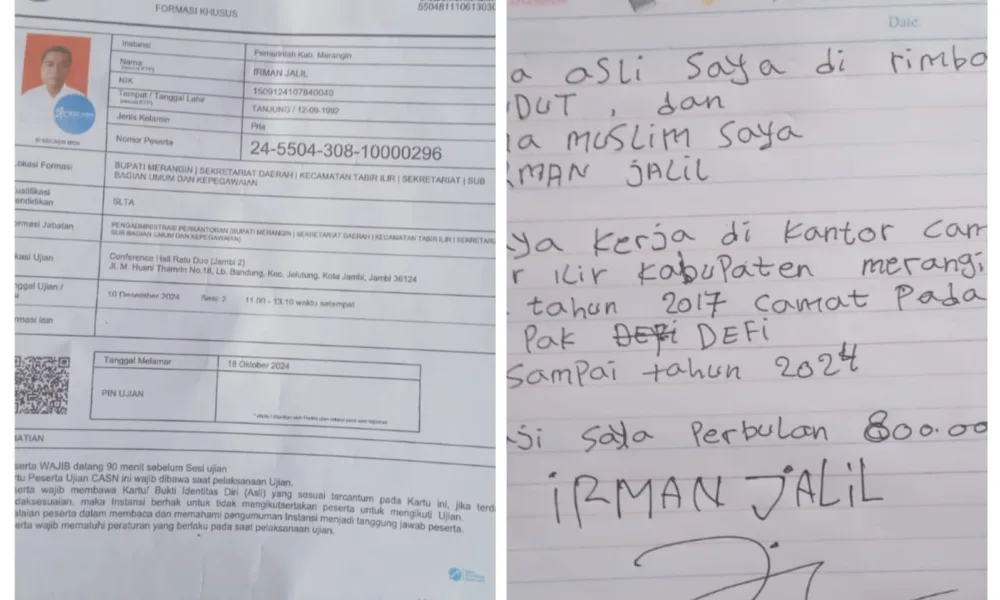 FORMASI KHUSUS
Instansi
Pemerintah Kab. Merangin
Nama
IRMAN JALIL
NIK
1509124107840040
Tempat / Tanggal Lahir
TANJUNG / 12-09-1982
Jenis Kelamin
Pria
Nomor Peserta
24-5504-308-10000296
okasi Formasi
BUPATI MERANGIN | SEKRETARIAT DAERAH | KECAMATAN TABIR ILIR | SEKRETARIAT | SUB
BAGIAN UMUM DAN KEPEGAWAIAN
ualifikasi
endidikan
SLTA
ormasi Jabatan
PENGADMINISTRASI PERKANTORAN (BUPATI MERANGIN | SEKRETARIAT DAERAH | KECAMATAN TABIR ILIR | SEKRETARIA
SUB BAGIAN UMUM DAN KEPEGAWAIAN)
kasi Ujian
Conference Hall Ratu Duo (Jambi 2)
Jl. M. Husni Thamrin No.18, Lb. Bandung, Kec. Jelutung, Kota Jambi, Jambi 36124
nggal Ujian /
10 Desember 2024 Sesi: 2 11.00 - 13.10 waktu setempat
rmasi lain
Tanggal Melamar
18 Oktober 2024
PIN UJIAN
HATIAN
serta WAJIB datang 90 menit sebelum Sesi ujian
rtu Peserta Ujian CASN ini wajib dibawa saat pelaksanaan Ujian.
serta wajib membawa Kartu/ Bukti Identitas Diri (Asli) yang sesuai tercantum pada Kartu ini, jika terda
daksesuaian, maka Instansi berhak untuk tidak mengikutsertakan peserta untuk mengikuti Ujian.
alaian peserta dalam membaca dan memahami pengumuman Instansi menjadi tanggung jawab peserta.
serta wajib mematuhi peraturan yang berlaku pada saat pelaksanaan ujian.
Date
a asli saya di rimbo
DUT, dan
a muslim saya
RMAN jALiL
ya kerja di kantor Cam
r ilir kabupaten merangi
tahun 2017 Camat Pada
Pak DEFi DEFi
Sampai tahun 2024
ji saya Perbulan 800.00
iRMAN jALiL